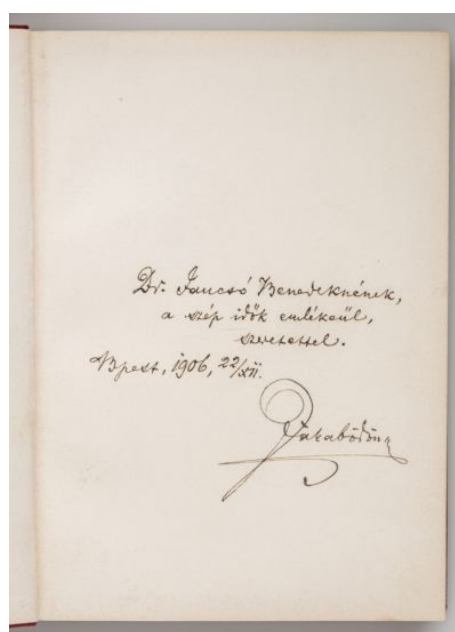 Dr. Jancsó Benedeknének,
a szép idők emlékeül,
szeretettel.
Bpest, 1906, 22/XII.
Jakab Ödön